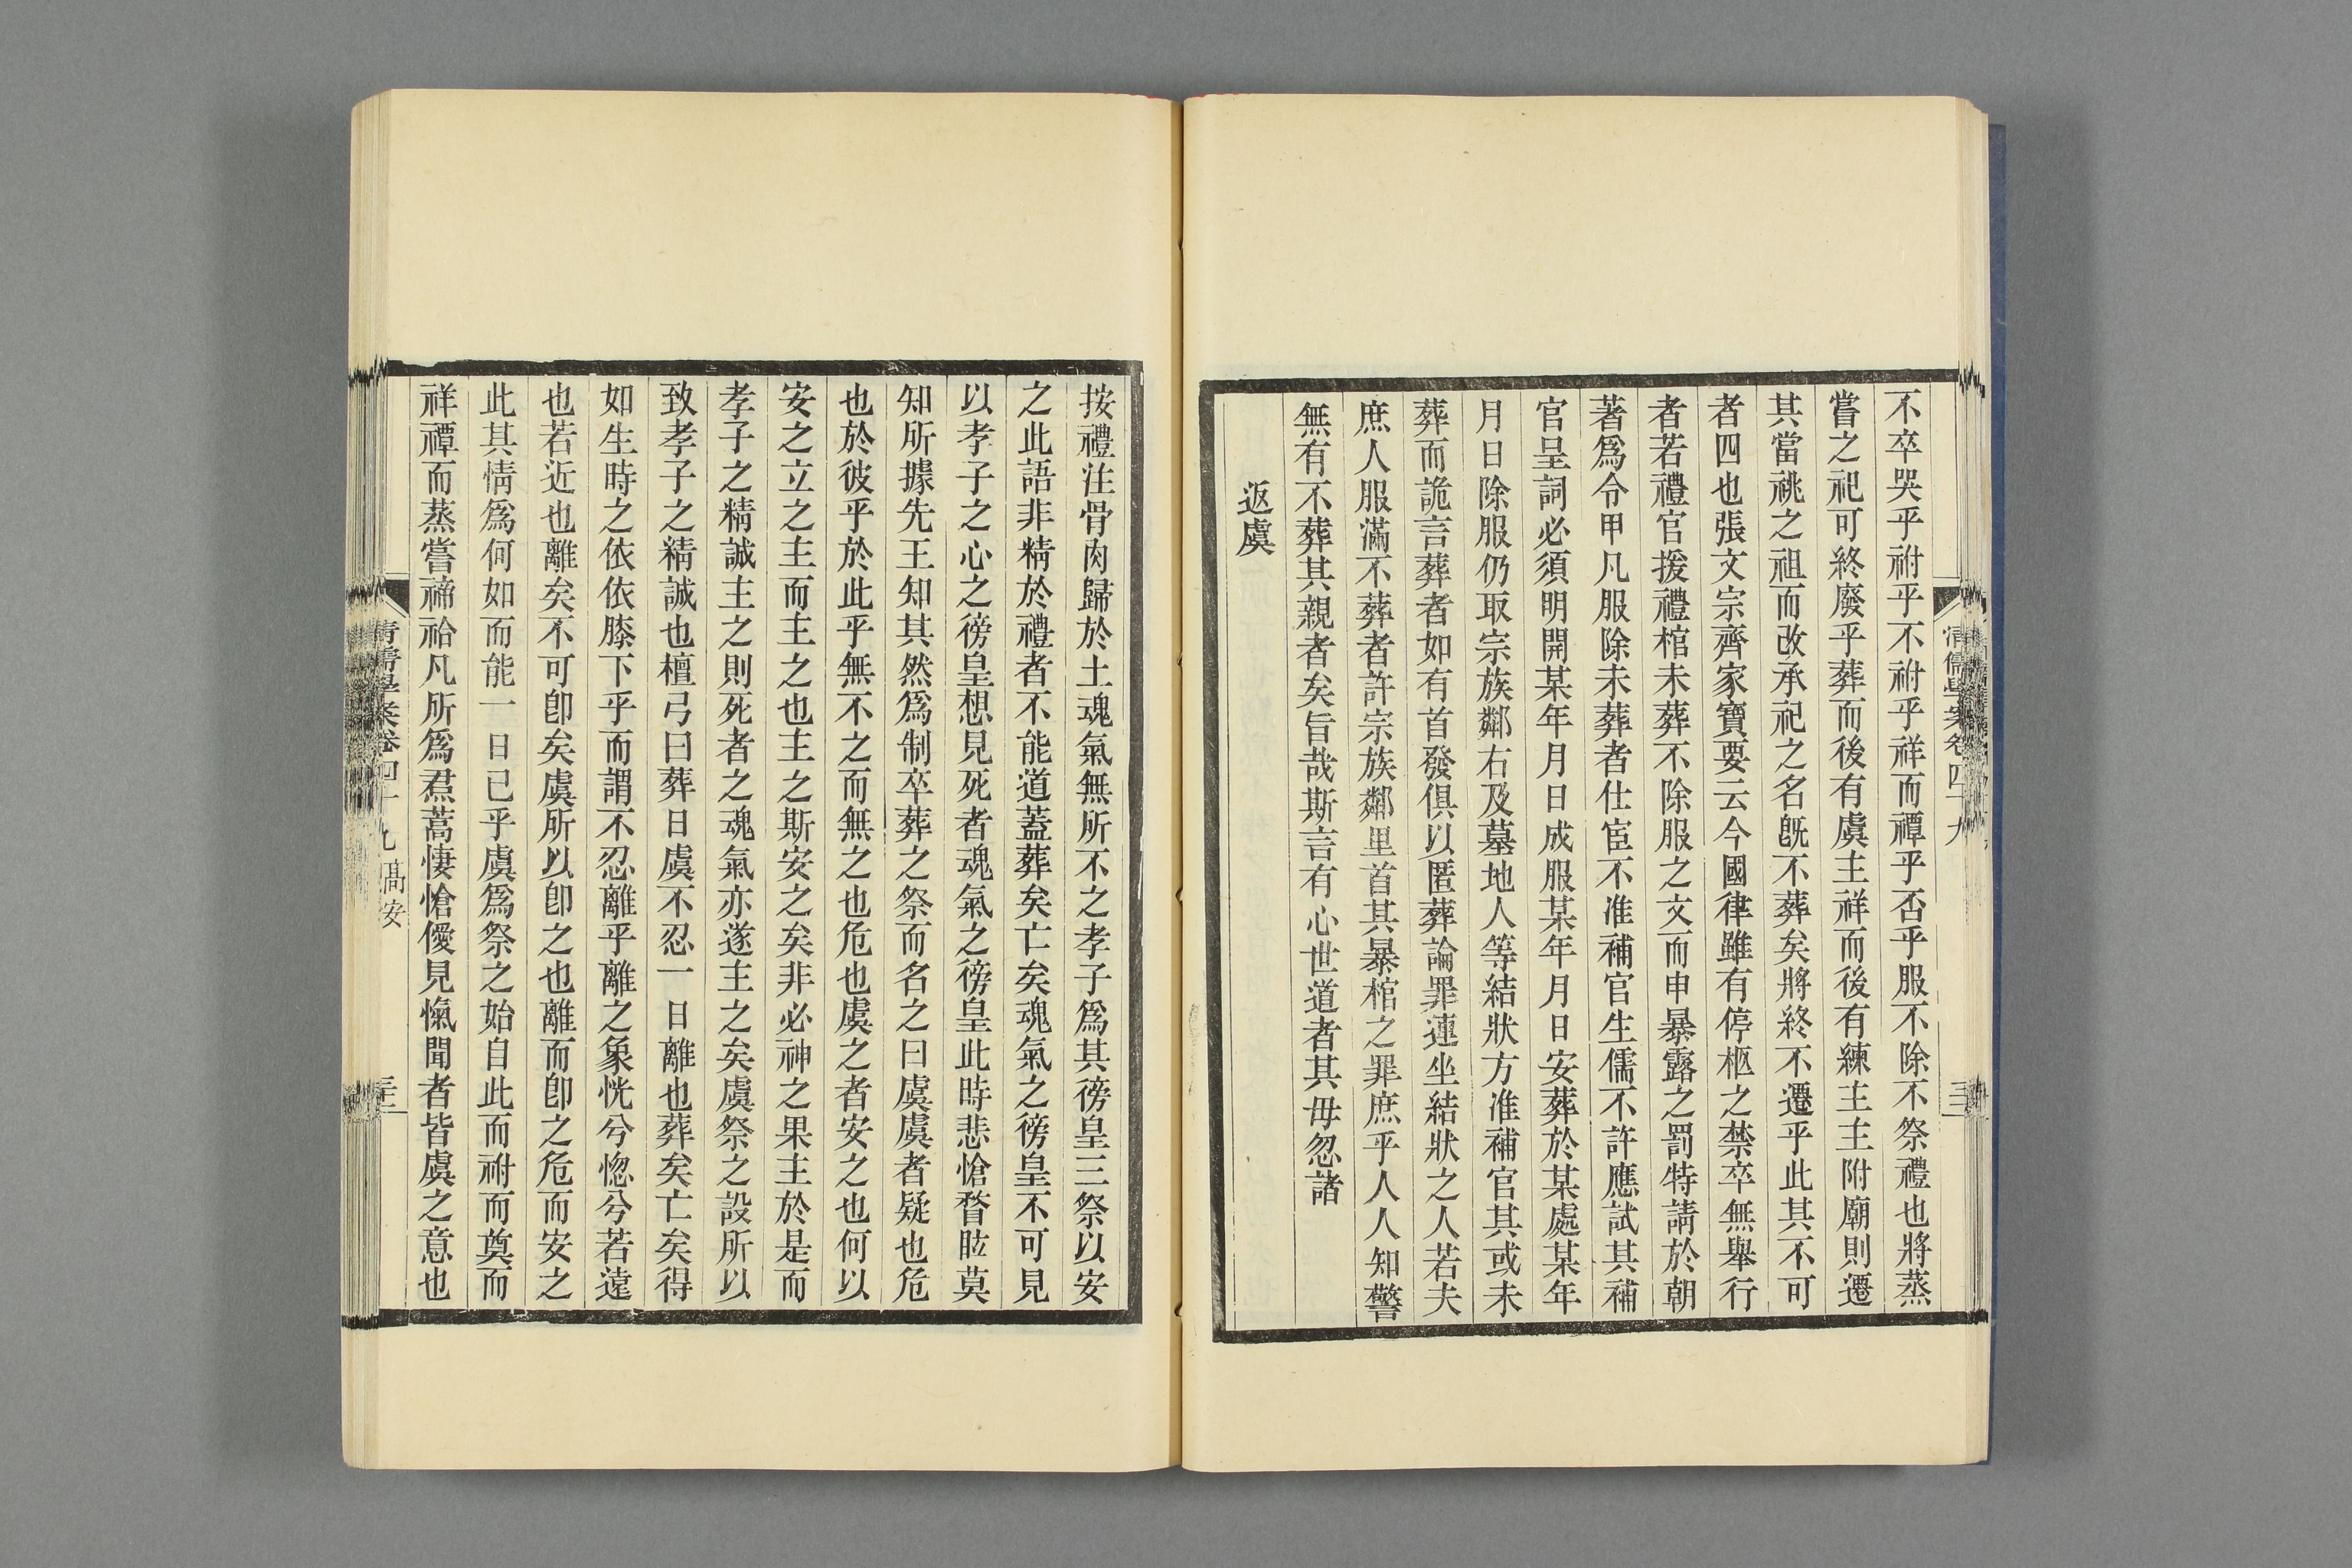 不卒哭乎祔乎不祔乎祥而禫乎否乎服不除不祭禮也將蒸
嘗之祀可終廢乎葬而後有虞主祥而後有練主主附廟則遷
其當祧之祖而改承祀之名旣不葬矣將終不遷乎此其不可
者四也張文宗齊家寶要云今國律雖有停柩之禁卒無舉行
者若禮官援禮棺未葬不除服之文而申暴露之罰特請於朝
著爲令甲凡服除未葬者仕宦不准補官生儒不許應試其補
官呈詞必須明開某年月日成服某年月日安葬於某處某年
月日除服仍取宗族鄰右及墓地人等結狀方准補官其或未
葬而詭言葬者如有首發俱以匿葬論罪連坐結狀之人若夫
庶人服滿不葬者許宗族鄰里首其暴棺之罪庶乎人人知警
無有不葬其親者矣旨哉斯言有心世道者其毋忽諸
返虞
清儒學案卷四十九
按禮注骨肉歸於土魂氣無所不之孝子爲其徬皇三祭以安
之此語非精於禮者不能道蓋葬矣亡矣魂氣之徬皇不可見
以孝子之心之徬皇想見死者魂氣之徬皇此時悲愴瞀眩莫
知所據先王知其然爲制卒葬之祭而名之曰虞虞者疑也危
也於彼乎於此乎無不之而無之也危也虞之者安之也何以
安之立之主而主之也主之斯安之矣非必神之果主於是而
孝子之精誠主之則死者之魂氣亦遂主之矣虞祭之設所以
致孝子之精誠也檀弓曰葬日虞不忍一日離也葬矣亡矣得
如生時之依依膝下乎而謂不忍離乎離之象恍兮惚兮若遠
也若近也離矣不可卽矣虞所以卽之也離而卽之危而安之
此其情爲何如而能一日已乎虞爲祭之始自此而祔而奠而
祥禫而蒸嘗禘祫凡所爲焄蒿悽愴僾見愾聞者皆虞之意也
清儒學案卷四十九 高安